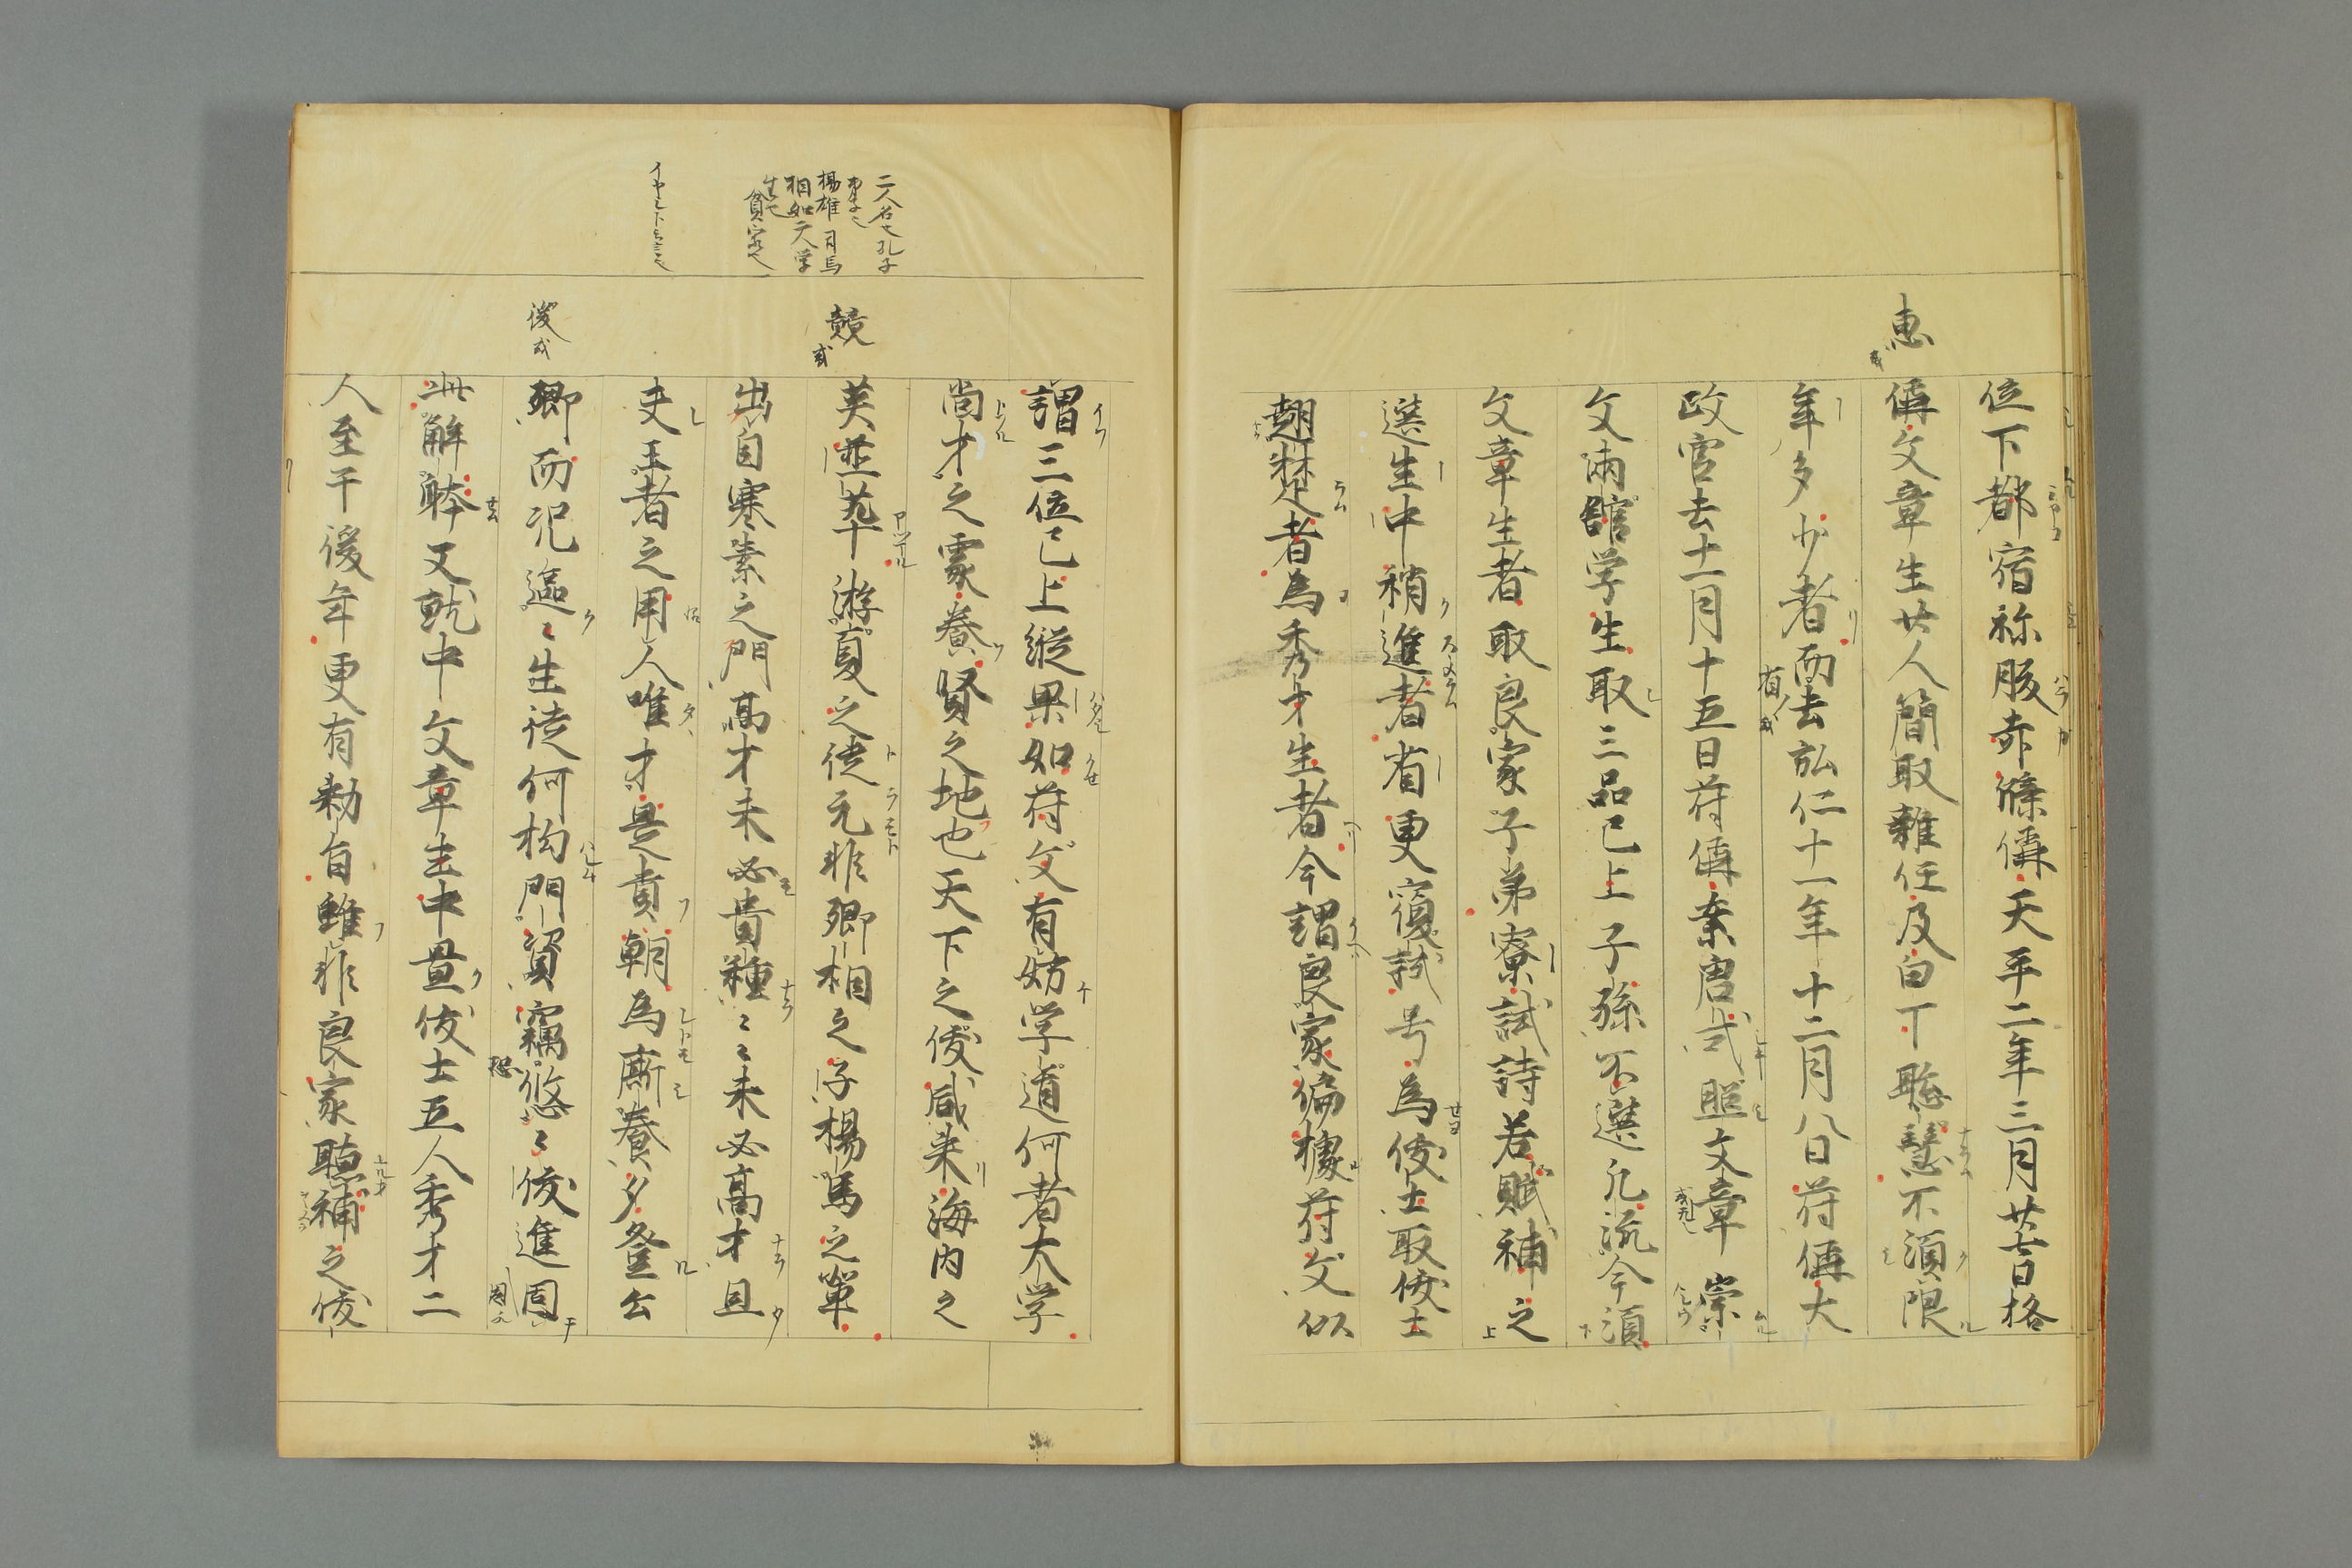 位下都宿祢腹赤牒偁天平二年三月廿七日格
偁文章生廿人簡取雜任及白丁聡慧不須限
年多少者而去弘仁十一年十二月八日符偁大
政官去十一月十五日符偁案唐式照文章崇
文両舘学生取三品已上子孫不選凡流今須
文章生者取良家子弟寮試詩若賦補之
選生中稍進者省更覆試号為俊士取俊士
翹楚者為秀才生者今謂良家偏據符文似
謂三位已上縦果如符文有妨学道何者大学
尚才之處養賢之地也天下之俊咸来海内之
英並萃游夏之徒元非卿相之子楊馬之輩
出自寒素之門高才未必貴種〻〻未必高才且
夫王者之用人唯才是貴朝為廝養夕登公
卿而况區〻生徒何拘門資竊恐悠〻後進因
此解躰又就中文章生中置俊士五人秀才二
人至于後年更有勅旨雖非良家聴補之俊
惠
或
競
或
後
或
二人名也孔子
弟子也
楊雄 司馬
相如大学
生也
貧家也